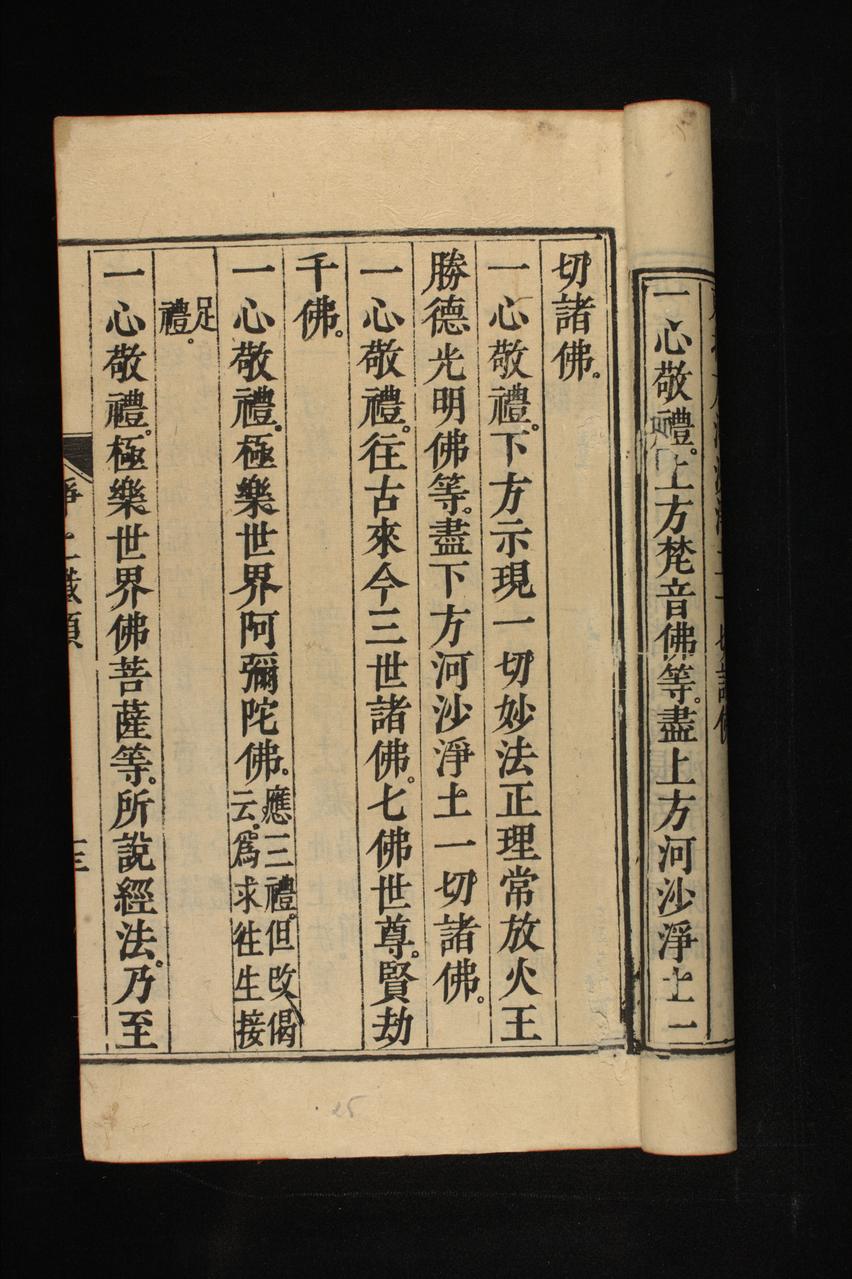 一心敬禮。上方梵音佛等。盡上方河沙淨土一
切諸佛。
一心敬禮。下方示現一切妙法正理常放火王
勝德光明佛等。盡下方河沙淨土一切諸佛。
一心敬禮。往古來今三世諸佛。七佛世尊。賢劫
千佛。
一心敬禮。極樂世界阿彌陀佛。
應三禮。但改偈
云。爲求徃生接
足
禮。
一心敬禮。極樂世界佛菩薩等。所說經法。乃至
淨土懺願
三
25